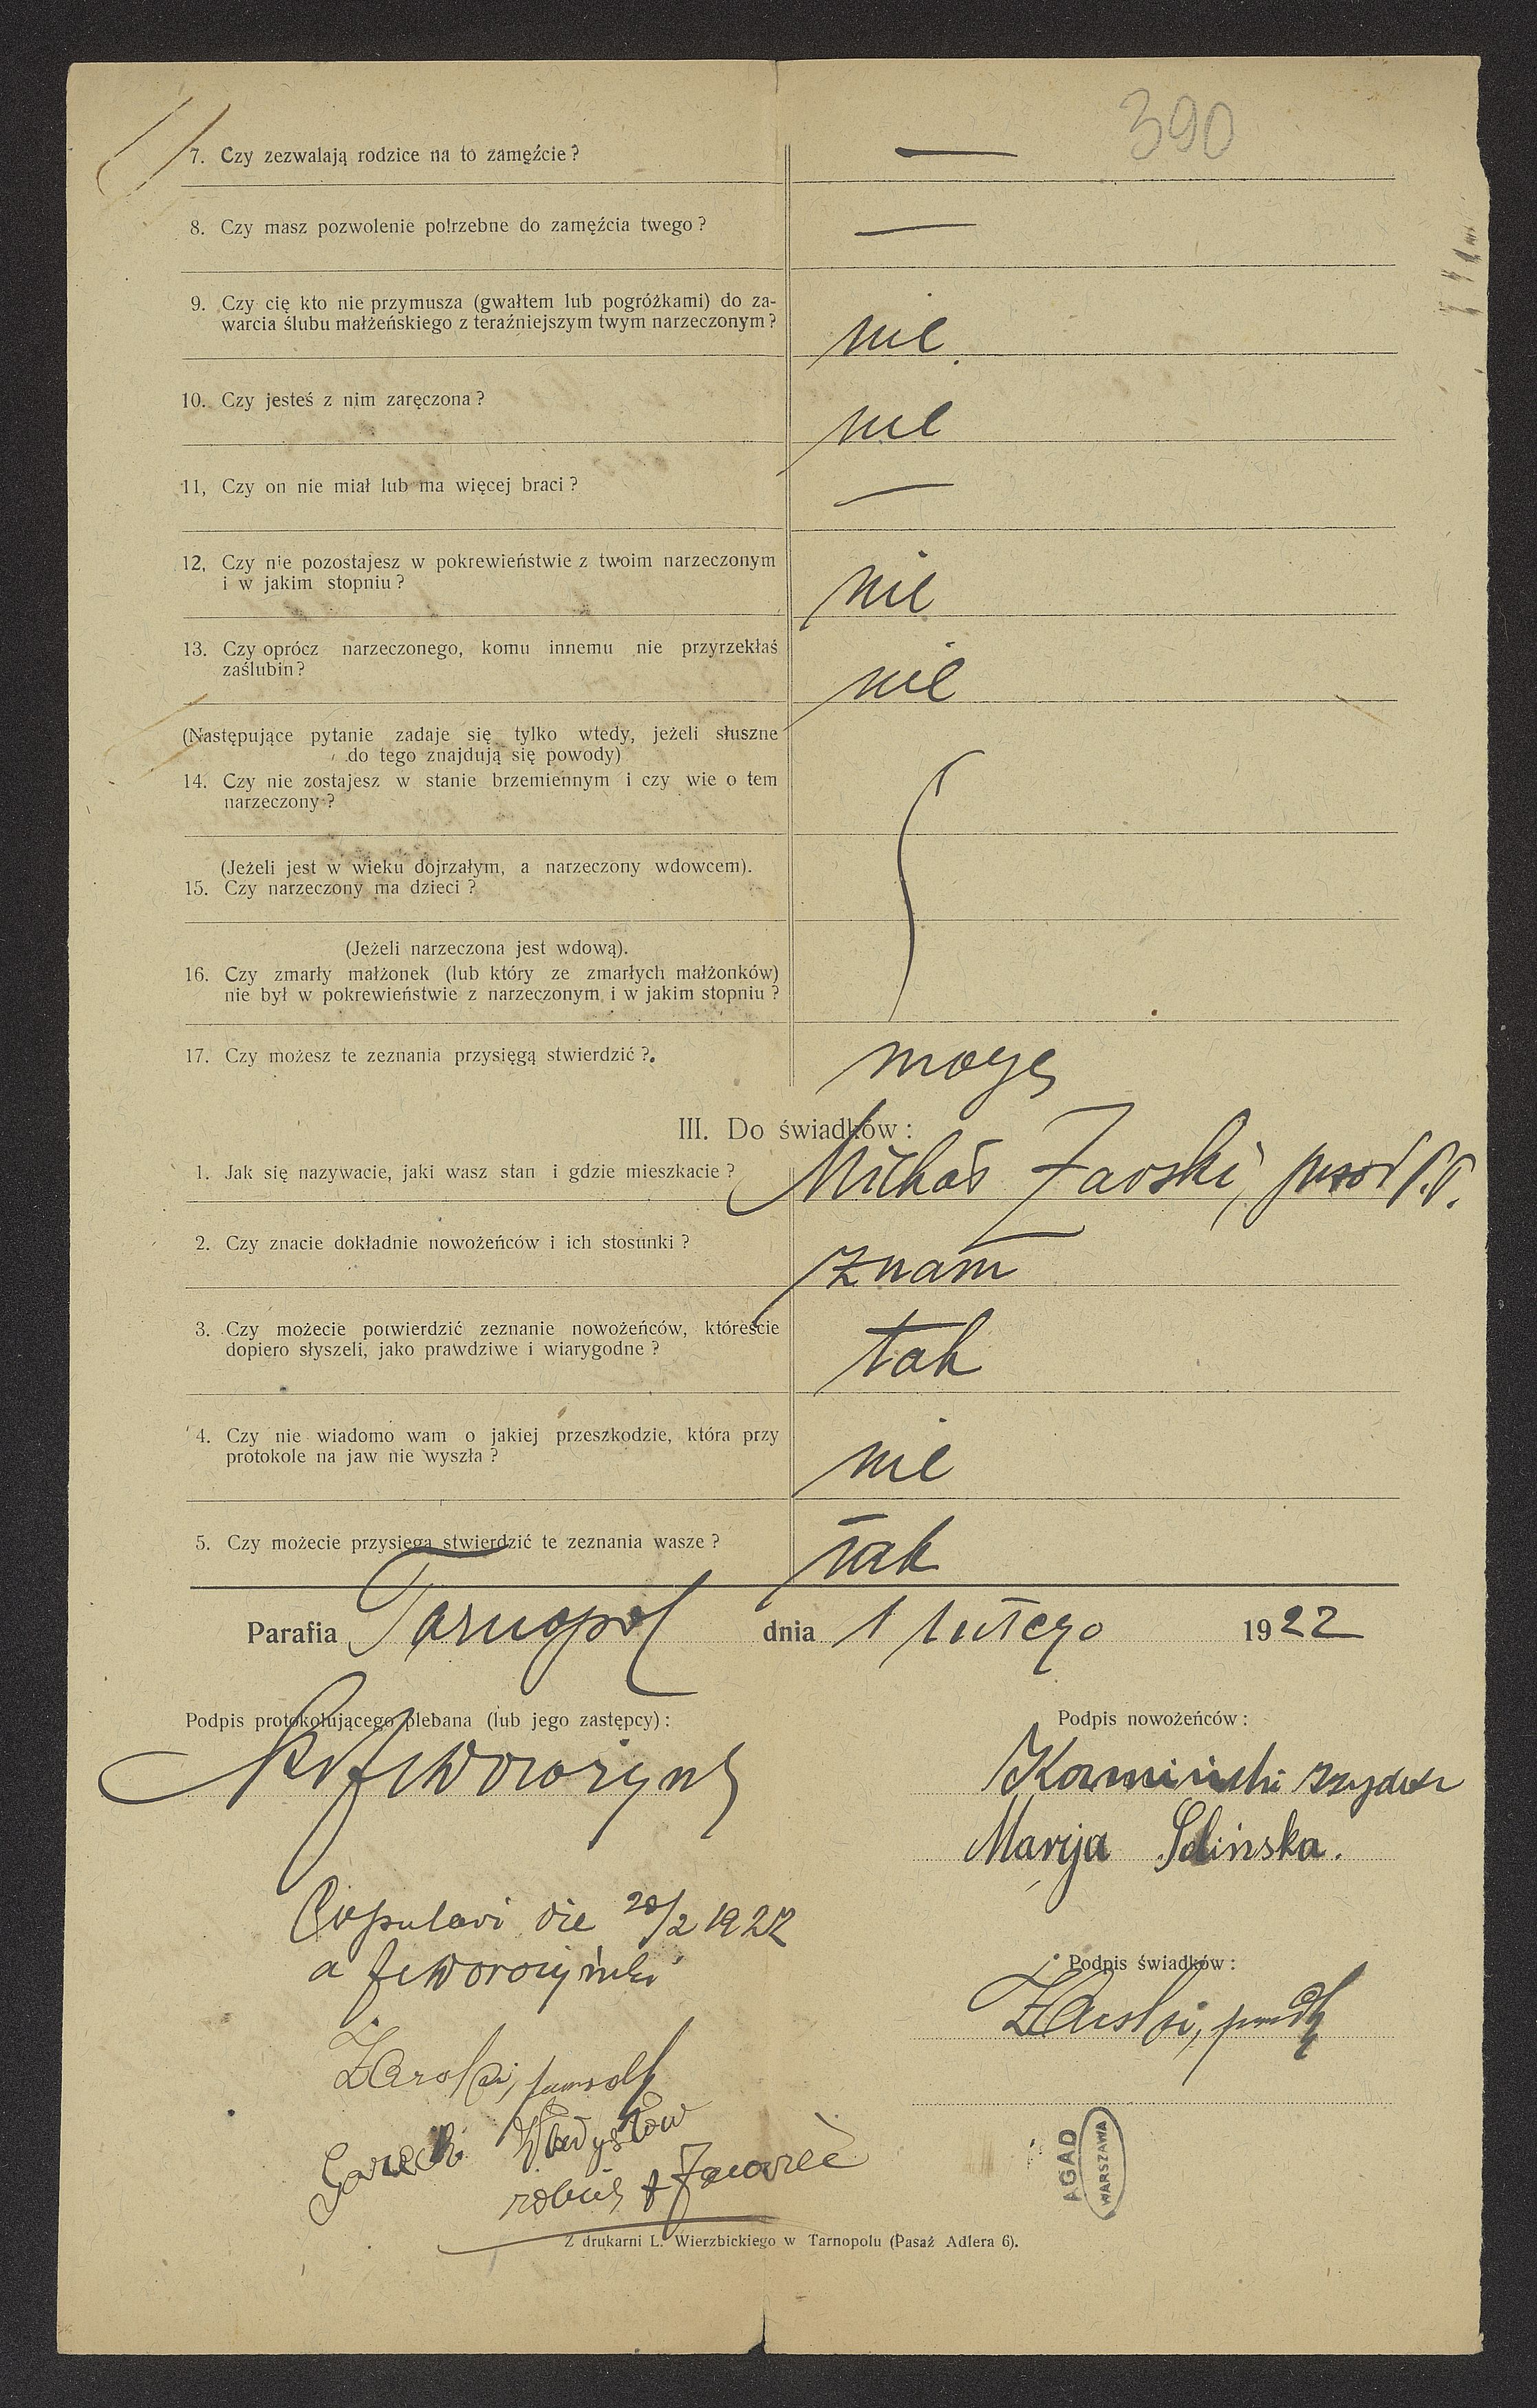 390
7. Czy zezwalają rodzice na to zamęźcie? —
8. Czy masz pozwolenie potrzebne do zamęźcia twego? —
9. Czy cię kto nie przymusza (gwałtem lub pogróżkami) do za-
warcia ślubu małżeńskiego z teraźniejszym twym narzeczonym? nie
10. Czy jesteś z nim zaręczona? nie
11, Czy on nie miał lub ma więcej braci? —
12, Czy nie pozostajesz w pokrewieństwie z twoim narzeczonym
i w jakim stopniu? nie
13. Czy oprócz narzeczonego, komu innemu nie przyrzekłaś
zaślubin? nie
(Następujące pytanie zadaje się tylko wtedy, jeżeli słuszne
do tego znajdują się powody)
14. Czy nie zostajesz w stanie brzemiennym i czy wie o tem
narzeczony?
(Jeżeli jest w wieku dojrzałym, a narzeczony wdowcem).
15. Czy narzeczony ma dzieci?
(Jeżeli narzeczona jest wdową).
16. Czy zmarły małżonek (lub który ze zmarłych małżonków)
nie był w pokrewieństwie z narzeczonym i w jakim stopniu?
17. Czy możesz te zeznania przysięgą stwierdzić? mogę
III. Do świadków:
1. Jak się nazywacie, jaki wasz stan i gdzie mieszkacie? Michał Żarski,
2. Czy znacie dokładnie nowożeńców i ich stosunki? znam
3. Czy możecie potwierdzić zeznanie nowożeńców, któreście
dopiero słyszeli, jako prawdziwe i wiarygodne? tak
4. Czy nie wiadomo wam o jakiej przeszkodzie, która przy
protokole na jaw nie wyszła? nie
5. Czy możecie przysięgą stwierdzić te zeznania wasze? tak
Parafia Tarnopol dnia 1 lutego 1922
Podpis protokołującego plebana (lub jego zastępcy):
Podpis nowożeńców:
Marija Solińska.
Copulavi die 20/2 1922
a
Podpis świadków:
Żarski,
Żarski,
Władysław
AGAD
WARSZAWA
Z drukarni L. Wierzbickiego w Tarnopolu (Pasaż Adlera 6).